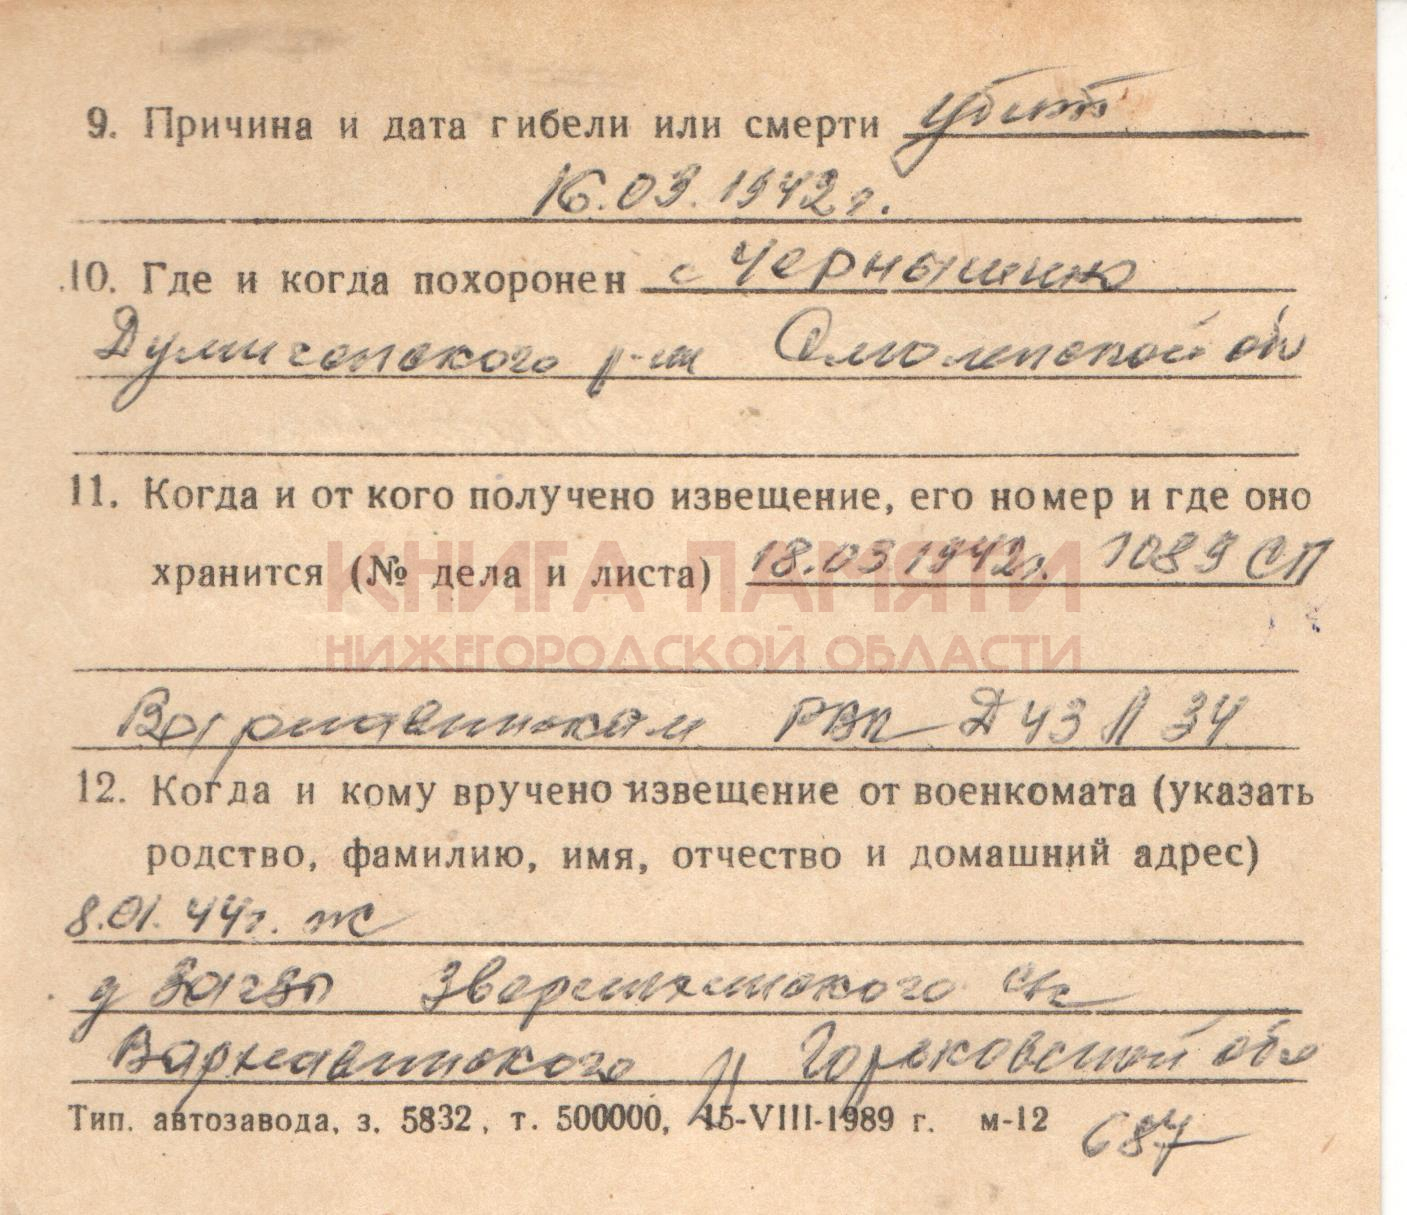 9. Причина и дата гибели или смерти убит
16.03.1942г.
10. Где и когда похоронен с Чернышино
Думиченского р-на Смоленской об
11. Когда и от кого получено извещение, его номер и где оно
хранится (№ дела и листа) 18.03 1942г. 1089 СП
КНИГА ПАМЯТИ
НИЖЕГОРОДСКОЙ ОБЛАСТИ
Варнавинским РВК Д 43 Л 34
12. Когда и кому вручено извещение от военкомата (указать
родство, фамилию, имя, отчество и домашний адрес)
8.01.44г.
д
Варнавинского р Горьковской обл
Тип. автозавода, з. 5832, т. 500000, 15-VIII-1989 г. м-12 687